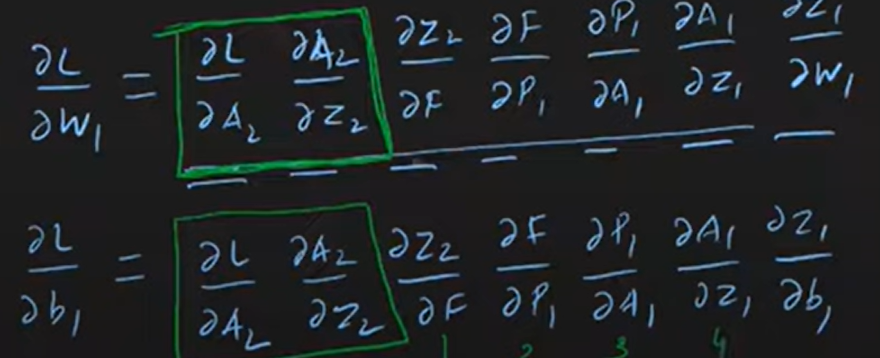 ∂L/∂W₁ = ∂L/∂A₂ ∂A₂/∂Z₂ ∂Z₂/∂F ∂F/∂P₁ ∂P₁/∂A₁ ∂A₁/∂Z₁ ∂Z₁/∂W₁
∂L/∂b₁ = ∂L/∂A₂ ∂A₂/∂Z₂ ∂Z₂/∂F ∂F/∂P₁ ∂P₁/∂A₁ ∂A₁/∂Z₁ ∂Z₁/∂b₁
1 2 3 4